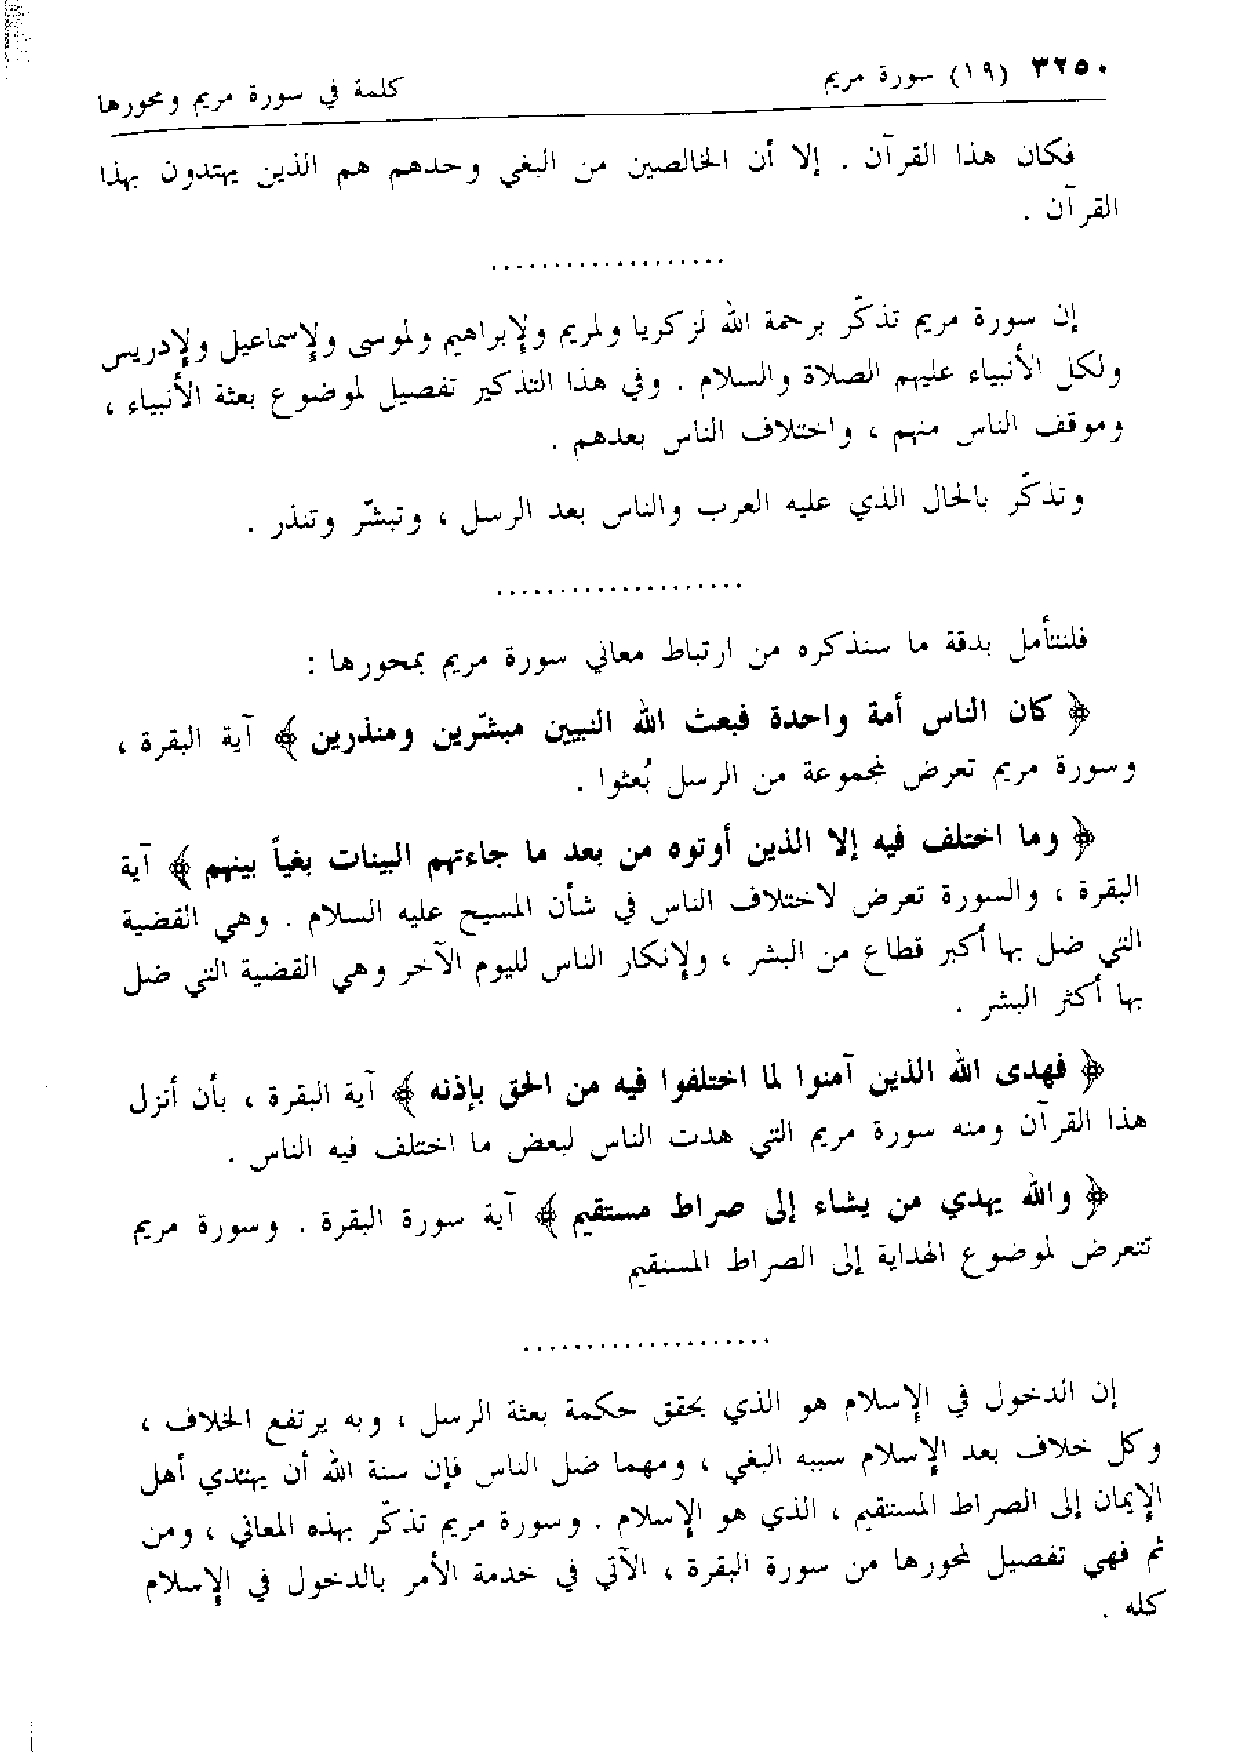 ٣٢٥٠ (١٩) سورة مريم كلمة في سورة مريم ومحورها
فكان هذا القرآن . إلا أن الخالصين من البغي وحدهم هم الذين يهتدون بهذا
القرآن .
...................
إن سورة مريم تذكّر برحمة الله لزكريا ولمريم ولإبراهيم ولموسى ولإسماعيل ولإدريس
ولكل الأنبياء عليهم الصلاة والسلام . وفي هذا التذكير تفصيل لموضوع بعثة الأنبياء ،
وموقف الناس منهم ، واختلاف الناس بعدهم .
وتذكّر بالحال الذي عليه العرب والناس بعد الرسل ، وتبشّر وتنذر .
....................
فلنتأمل بدقة ما سنذكره من ارتباط معاني سورة مريم بمحورها :
﴿ كان الناس أمة واحدة فبعث الله النبيين مبشّرين ومنذرين ﴾ آية البقرة ،
وسورة مريم تعرض لمجموعة من الرسل بُعثوا .
﴿ وما اختلف فيه إلا الذين أوتوه من بعد ما جاءتهم البينات بغياً بينهم ﴾ آية
البقرة ، والسورة تعرض لاختلاف الناس في شأن المسيح عليه السلام . وهي القضية
التي ضل بها أكبر قطاع من البشر ، ولإنكار الناس لليوم الآخر وهي القضية التي ضل
بها أكثر البشر .
﴿ فهدى الله الذين آمنوا لما اختلفوا فيه من الحق بإذنه ﴾ آية البقرة ، بأن أنزل
هذا القرآن ومنه سورة مريم التي هدت الناس لبعض ما اختلف فيه الناس .
﴿ والله يهدي من يشاء إلى صراط مستقيم ﴾ آية سورة البقرة . وسورة مريم
تتعرض لموضوع الهداية إلى الصراط المستقيم
....................
إن الدخول في الإسلام هو الذي يحقق حكمة بعثة الرسل ، وبه يرتفع الخلاف ،
وكل خلاف بعد الإسلام سببه البغي ، ومهما ضل الناس فإن سنة الله أن يهتدي أهل
الإيمان إلى الصراط المستقيم ، الذي هو الإسلام . وسورة مريم تذكّر بهذه المعاني ، ومن
ثم فهي تفصيل لمحورها من سورة البقرة ، الآتي في خدمة الأمر بالدخول في الإسلام
كله .